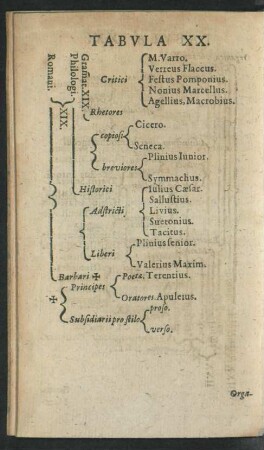 TABVLA XX.
Romani.
XIX.
Philologi.
Grāmat. XIX.
Critici
M. Varro.
Verreus Flaccus.
Festus Pomponius.
Nonius Marcellus.
Agellius, Macrobius.
Rhetores
copiosi
Cicero.
Seneca.
breviores
Plinius Iunior.
Symmachus.
Historici
Adstricti
Iulius Cæsar.
Sallustius.
Livius.
Suetonius.
Tacitus.
Liberi
Plinius senior.
Valerius Maxim.
Barbari ✠
✠
Principes
Poeta. Terentius.
Oratores Apuleius.
Subsidiarii pro stilo
proso.
verso.
Orga-